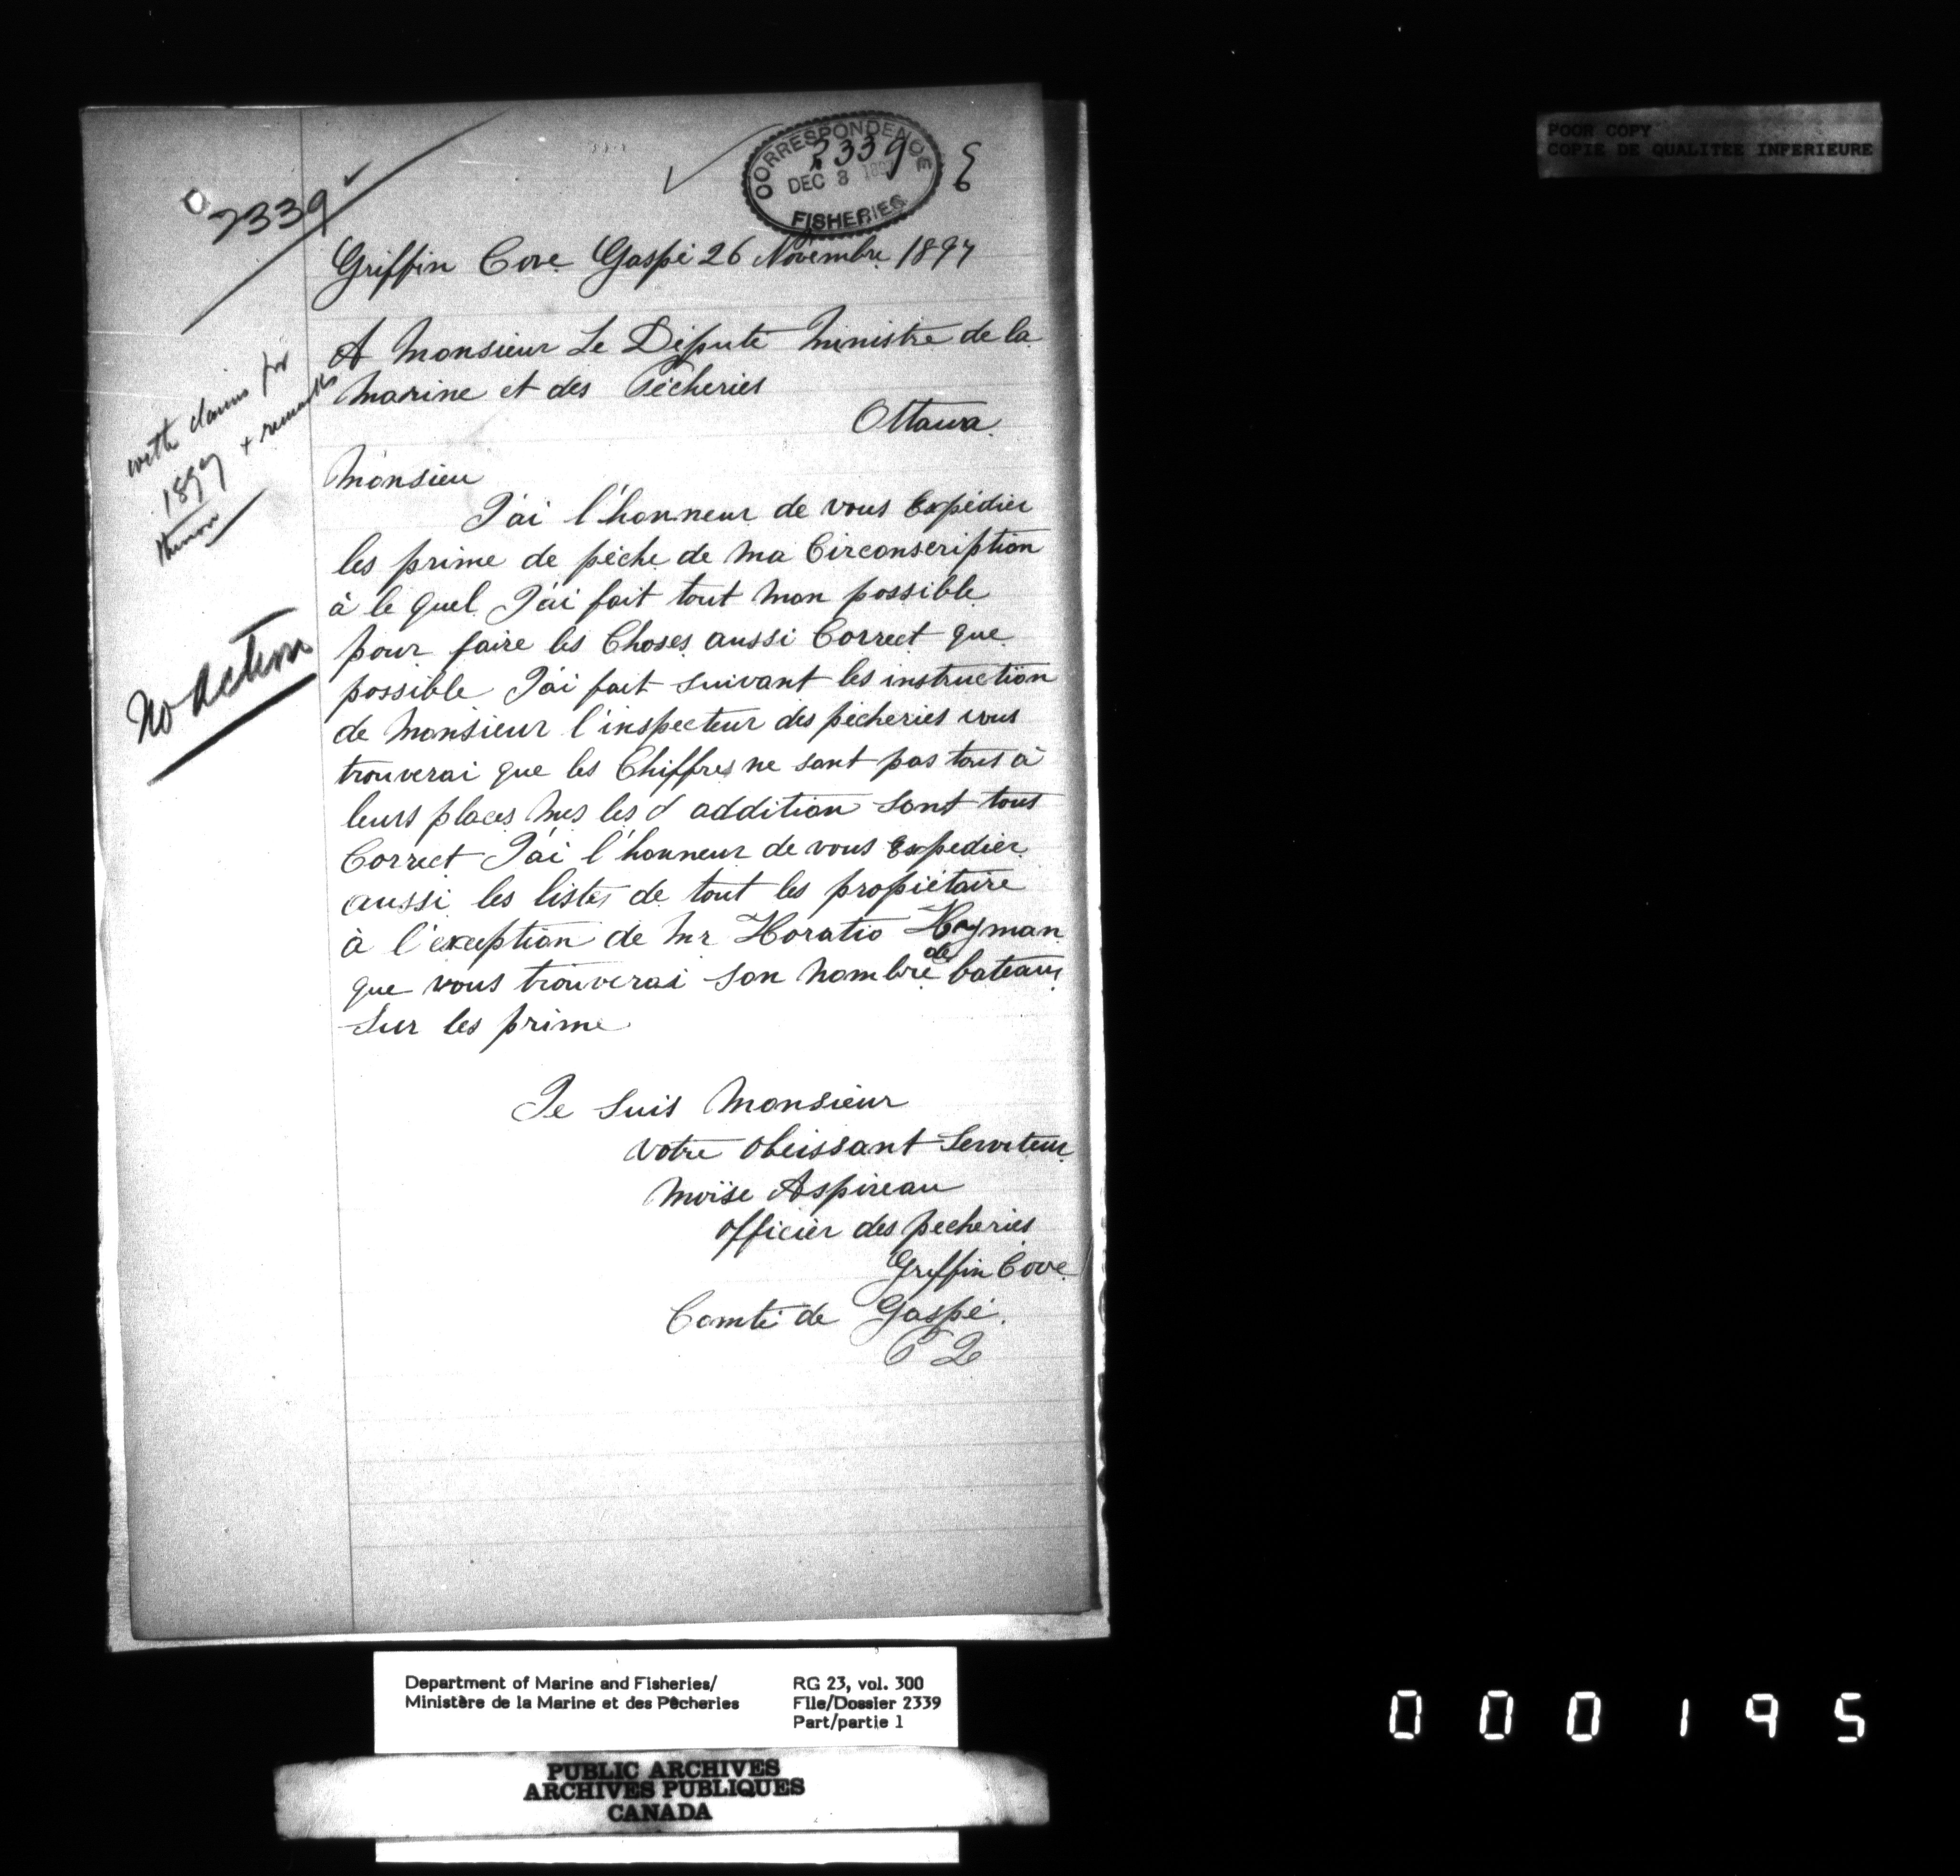 POOR COPY
COPIE DE QUALITEE INFERIEURE
CORRESPONDENCE
2339
DEC 3 1897
FISHERIES
2339
Griffin Cove Gaspé 26 Novembre 1897
A Monsieur Le Députe Ministre de la
Marine et des Pêcheries
Ottawa.
with claims for
1897 + remarks
thereon
No action
Monsieu
J'ai l'honneur de vous Expédier
les prime de pêche de ma Circonscription
à le quel J'ai fait tout mon possible
pour faire les Choses aussi Correct que
possible J'ai fait suivant les instruction
de Monsieur l'inspecteur des pêcheries vous
trouverai que les Chiffres ne sont pas tous à
leurs places mes les d addition sont tous
Correct J'ai l'honneur de vous Expedier
aussi les listes de tout les propiétaire
à l'exeption de Mr Horatio Hyman
que vous trouverai son nombre de bateaux
Sur les prime
Je Suis Monsieur
votre obeissant Serviteur
Moïse Aspireau
officier des pecheries
Griffin Cove
Comté de Gaspé.
P Q
Department of Marine and Fisheries/
Ministère de la Marine et des Pêcheries
RG 23, vol. 300
File/Dossier 2339
Part/partie 1
PUBLIC ARCHIVES
ARCHIVES PUBLIQUES
CANADA
000195